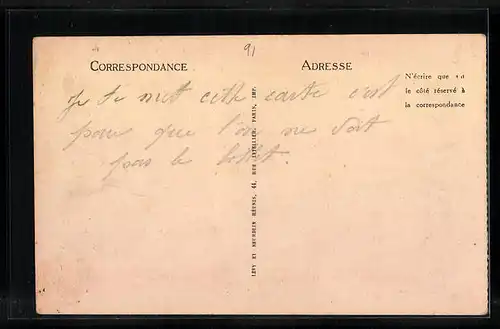 91
CORRESPONDANCE
ADRESSE
N'écrire que
le côté réservé à
la correspondance
je te met cette carte c'est
pour que l'on ne voit
pas le billet.
LÉVY ET NEURDEIN RÉUNIS, 44, RUE LETELLIER, PARIS, IMP.